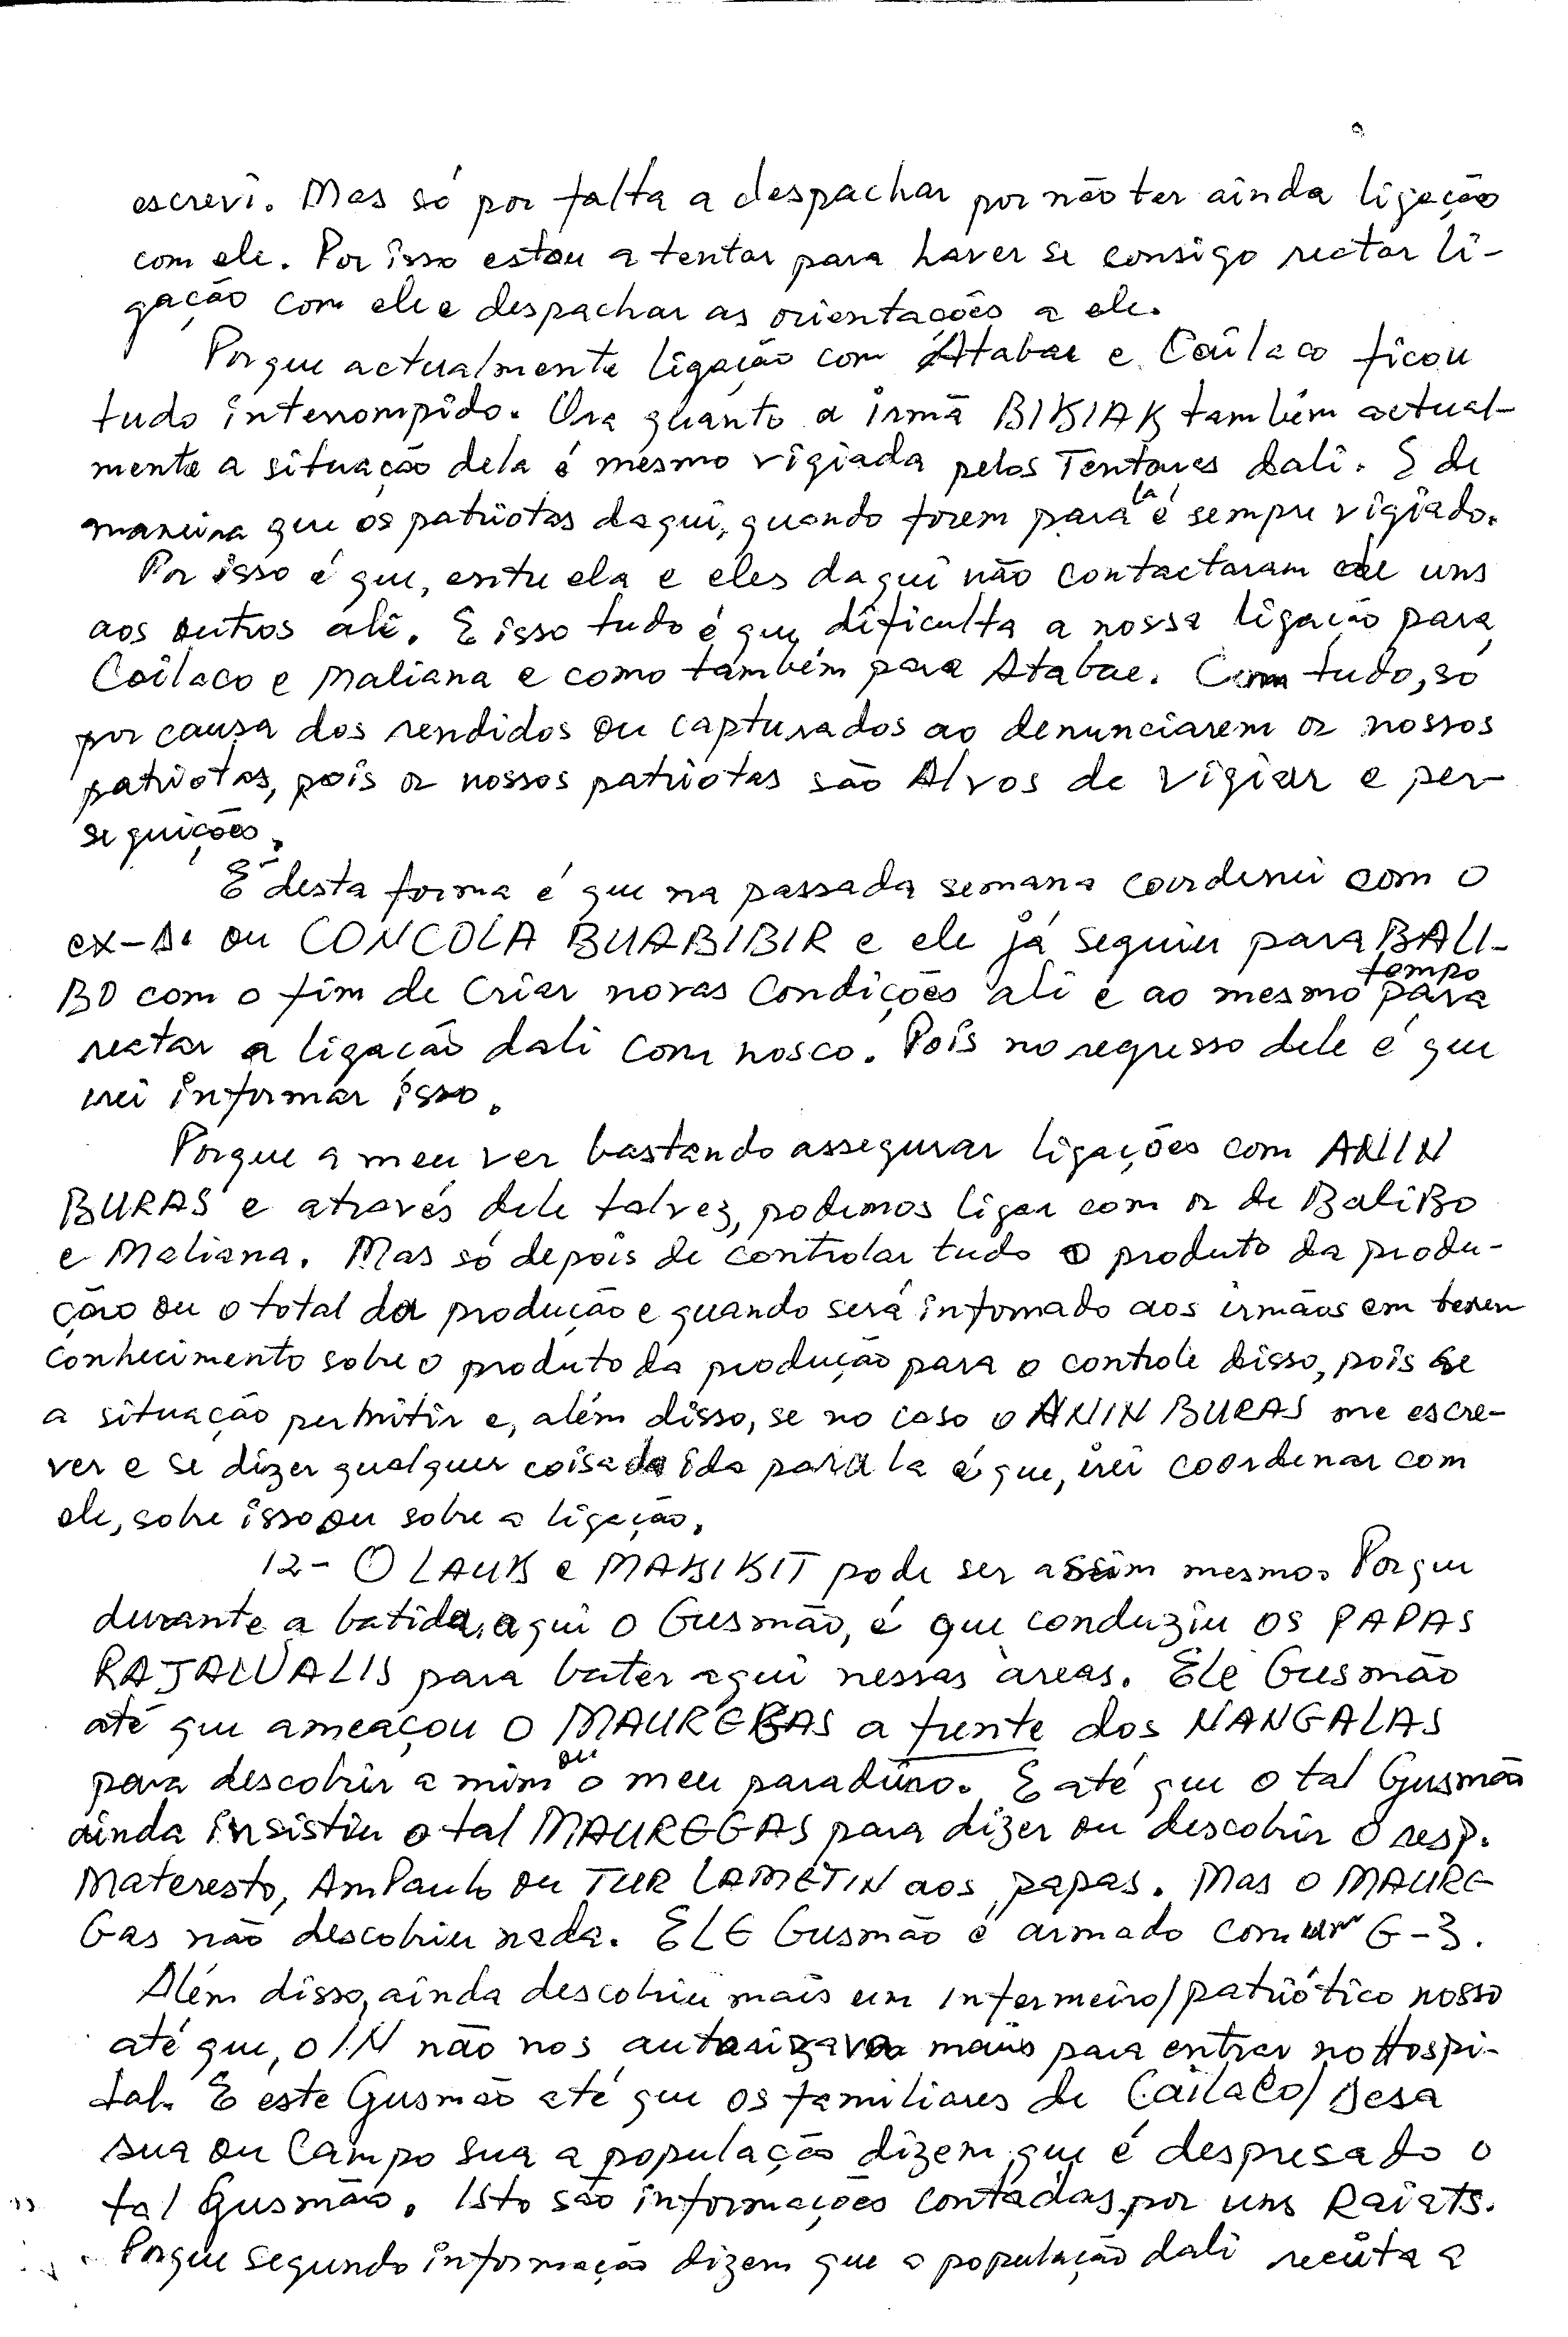 escrevi. Mas só por falta a despachar por não ter ainda ligação
com ele. Por isso estou a tentar para haver se consigo rectar li-
gação com ele e despachar as orientações a ele.
Porque actualmente ligação com Atabae e Cailaco ficou
tudo interrompido. Ora quanto a irmã BIKIAK também actual-
mente a situação dela é mesmo vigiada pelos Tentares dali. E de
maneira que os patriotas daqui, quando forem para la é sempre vigiado.
Por isso é que, entre ela e eles daqui não contactaram de uns
aos outros ali. E isso tudo é que dificulta a nossa ligação para
Cailaco e Maliana e como também para Atabae. Com tudo, só
por causa dos rendidos ou capturados ao denunciarem os nossos
patriotas, pois os nossos patriotas são Alvos de vigiar e per-
seguições.
E desta forma é que na passada semana coordenei com o
ex-A. ou CONCOLA BUABIBIR e ele já seguiu para BALI-
BO com o fim de Criar novas Condições ali e ao mesmo tempo para
rectar a ligação dali com nosco. Pois no regresso dele é que
irei informar isso.
Porque a meu ver bastando assegurar ligações com ANIN
BURAS e através dele talvez, podemos ligar com os de BaliBo
e Maliana. Mas só depois de controlar tudo o produto da produ-
ção ou o total da produção e quando será infomado aos irmãos em terem
conhecimento sobre o produto da produção para o controle disso, pois se
a situação permitir e, além disso, se no caso o ANIN BURAS me escre-
ver e se dizer qualquer coisa da ida para la é que, irei coordenar com
ele, sobre isso ou sobre a ligação.
12- O LAUK e MAKIKIT pode ser assim mesmo. Porque
durante a batida, aqui o Gusmão, é que conduziu os PAPAS
RAJAWALIS para bater aqui nessas àreas. Ele Gusmão
até que ameaçou o MAUREGAS a frente dos NANGALAS
para descobrir a mim ou o meu paradeiro. E até que o tal Gusmão
ainda insistiu o tal MAUREGAS para dizer ou descobrir o resp.
Materesto, AmPaulo ou TUR LAMETIN aos papas. Mas o MAURE
Gas não descobriu nada. ELE Gusmão é armado com um G-3.
Além disso, ainda descobriu mais um Infermeiro/patriótico nosso
até que, o IN não nos autorizava mais para entrar no Hospi-
tal. E este Gusmão até que os familiares de Cailaco/Desa
sua ou Campo sua a população dizem que é despresado o
tal Gusmão. Isto são informações contadas por uns Raiats.
Porque segundo informação dizem que a população dali recuta a